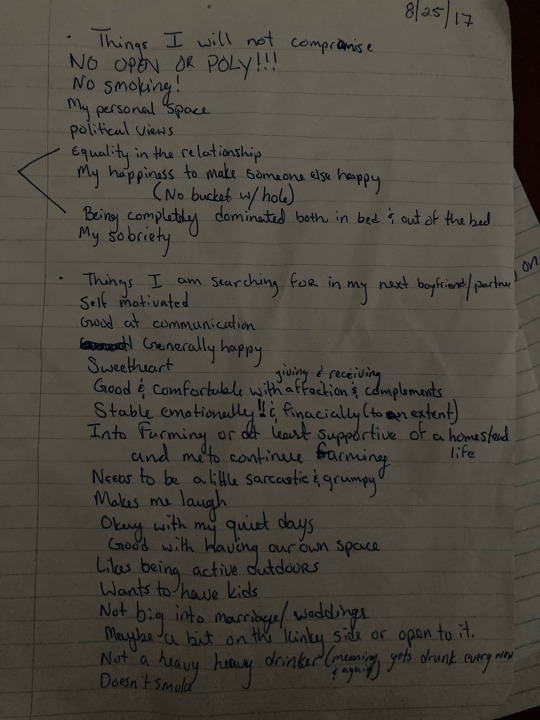 8/25/17
· Things I will not compromise
NO OPEN OR POLY!!!
No smoking!
My personal space
political views
Equality in the relationship
My happiness to make someone else happy
(No bucket w/ hole)
Being completely dominated both in bed & out of the bed
My sobriety
· Things I am searching for in my next boyfriend/partner
Self motivated
Good at communication
Generally happy
Sweetheart
giving & receiving
Good & comfortable with affection & complements
Stable emotionally!! & finacially (to an extent)
Into Farming or at least supportive of a homestead life
and me to continue farming
Needs to be a little sarcastic & grumpy
Makes me laugh
Okay with my quiet days
Good with having our own space
Likes being active outdoors
Wants to have kids
Not big into marriage/weddings
Maybe a bit on the kinky side or open to it.
Not a heavy heavy drinker (meaning gets drunk every now & again)
Doesn't smoke
on